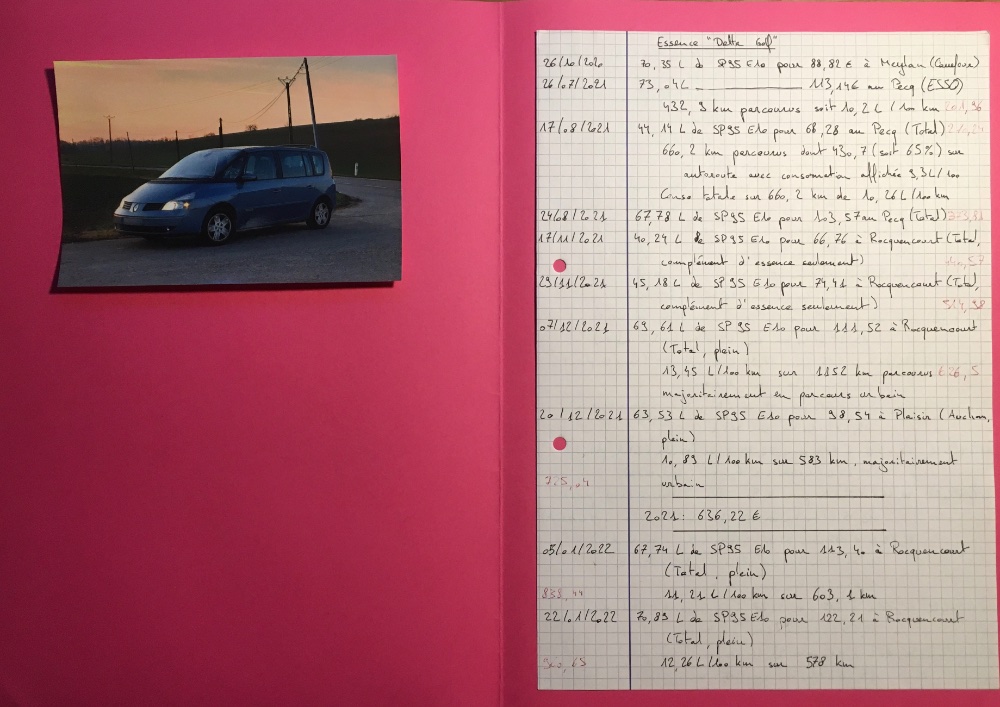 Essence "Delta Golf"
26/10/2020 70,35 L de SP95 E10 pour 88,82 € à Meylan (Carrefour)
26/07/2021 73,04L ———— 113,146 au Pecq (ESSO)
432,9 km parcourus soit 10,2 L/100 km 201,96
17/08/2021 44,14 L de SP95 E10 pour 68,28 au Pecq (Total) 270,24
660,2 km parcourus dont 430,7 (soit 65%) sur
autoroute avec consommation affichée 9,9L/100
Conso totale sur 660,2 km de 10,26L/100km
24/08/2021 67,78 L de SP95 E10 pour 103,57 au Pecq (Total) 373,81
17/11/2021 40,24 L de SP95 E10 pour 66,76 à Rocquencourt (Total,
complément d'essence seulement) 440,57
29/11/2021 45,18 L de SP95 E10 pour 74,41 à Rocquencourt (Total,
complément d'essence seulement) 514,98
07/12/2021 69,61 L de SP95 E10 pour 111,52 à Rocquencourt
(Total, plein)
13,45 L/100 km sur 1152 km parcourus 626,5
majoritairement en parcours urbain
20/12/2021 63,53 L de SP95 E10 pour 98,54 à Plaisir (Auchan,
plein)
10,89 L/100 km sur 583 km, majoritairement
725,04 urbain
2021: 636,22 €
05/01/2022 67,74 L de SP95 E10 pour 113,40 à Rocquencourt
(Total, plein)
838,44 11,21 L/100 km sur 603,1 km
22/01/2022 70,89 L de SP95 E10 pour 122,21 à Rocquencourt
(Total, plein)
960,65 12,26 L/100 km sur 578 km